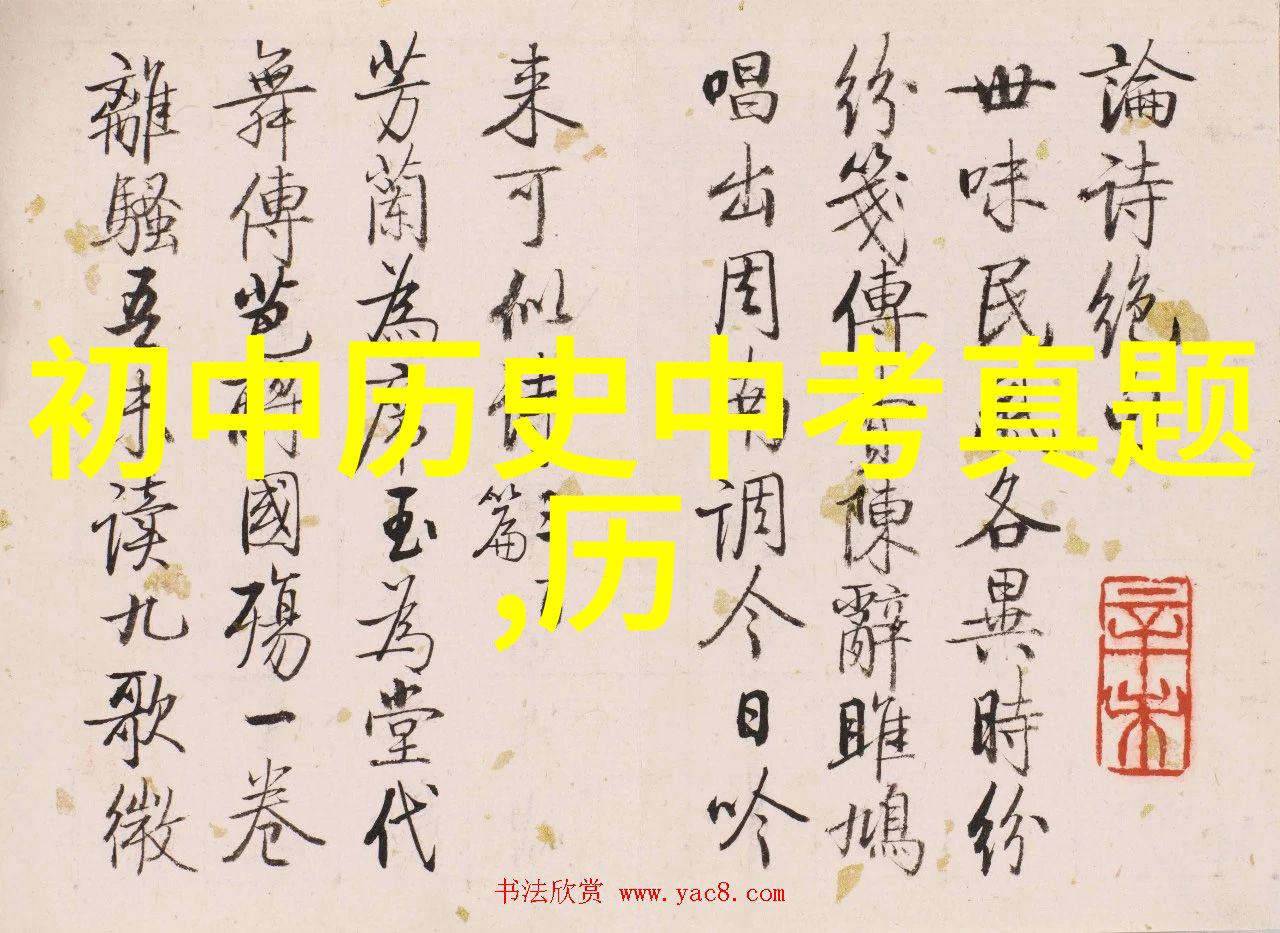 論诗绝
世味民各異時纷
纷笺傳陳辭雎鳩
唱出周南调今日吟
来可似诗篇
芳蘭為席玉為堂代
舞傳芭國殤一卷
離騷吾未读九歌微
辛未
初中历史中考真题
,历
书法欣赏 www.yac8.com